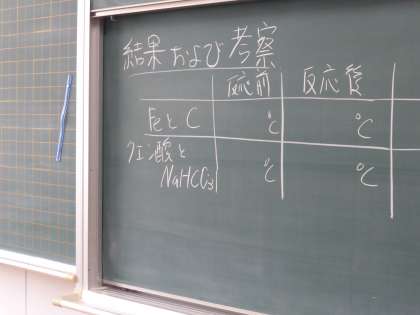 結果および考察
反応前 反応後
FeとC ℃ ℃
クエン酸と
NaHCO3 ℃ ℃